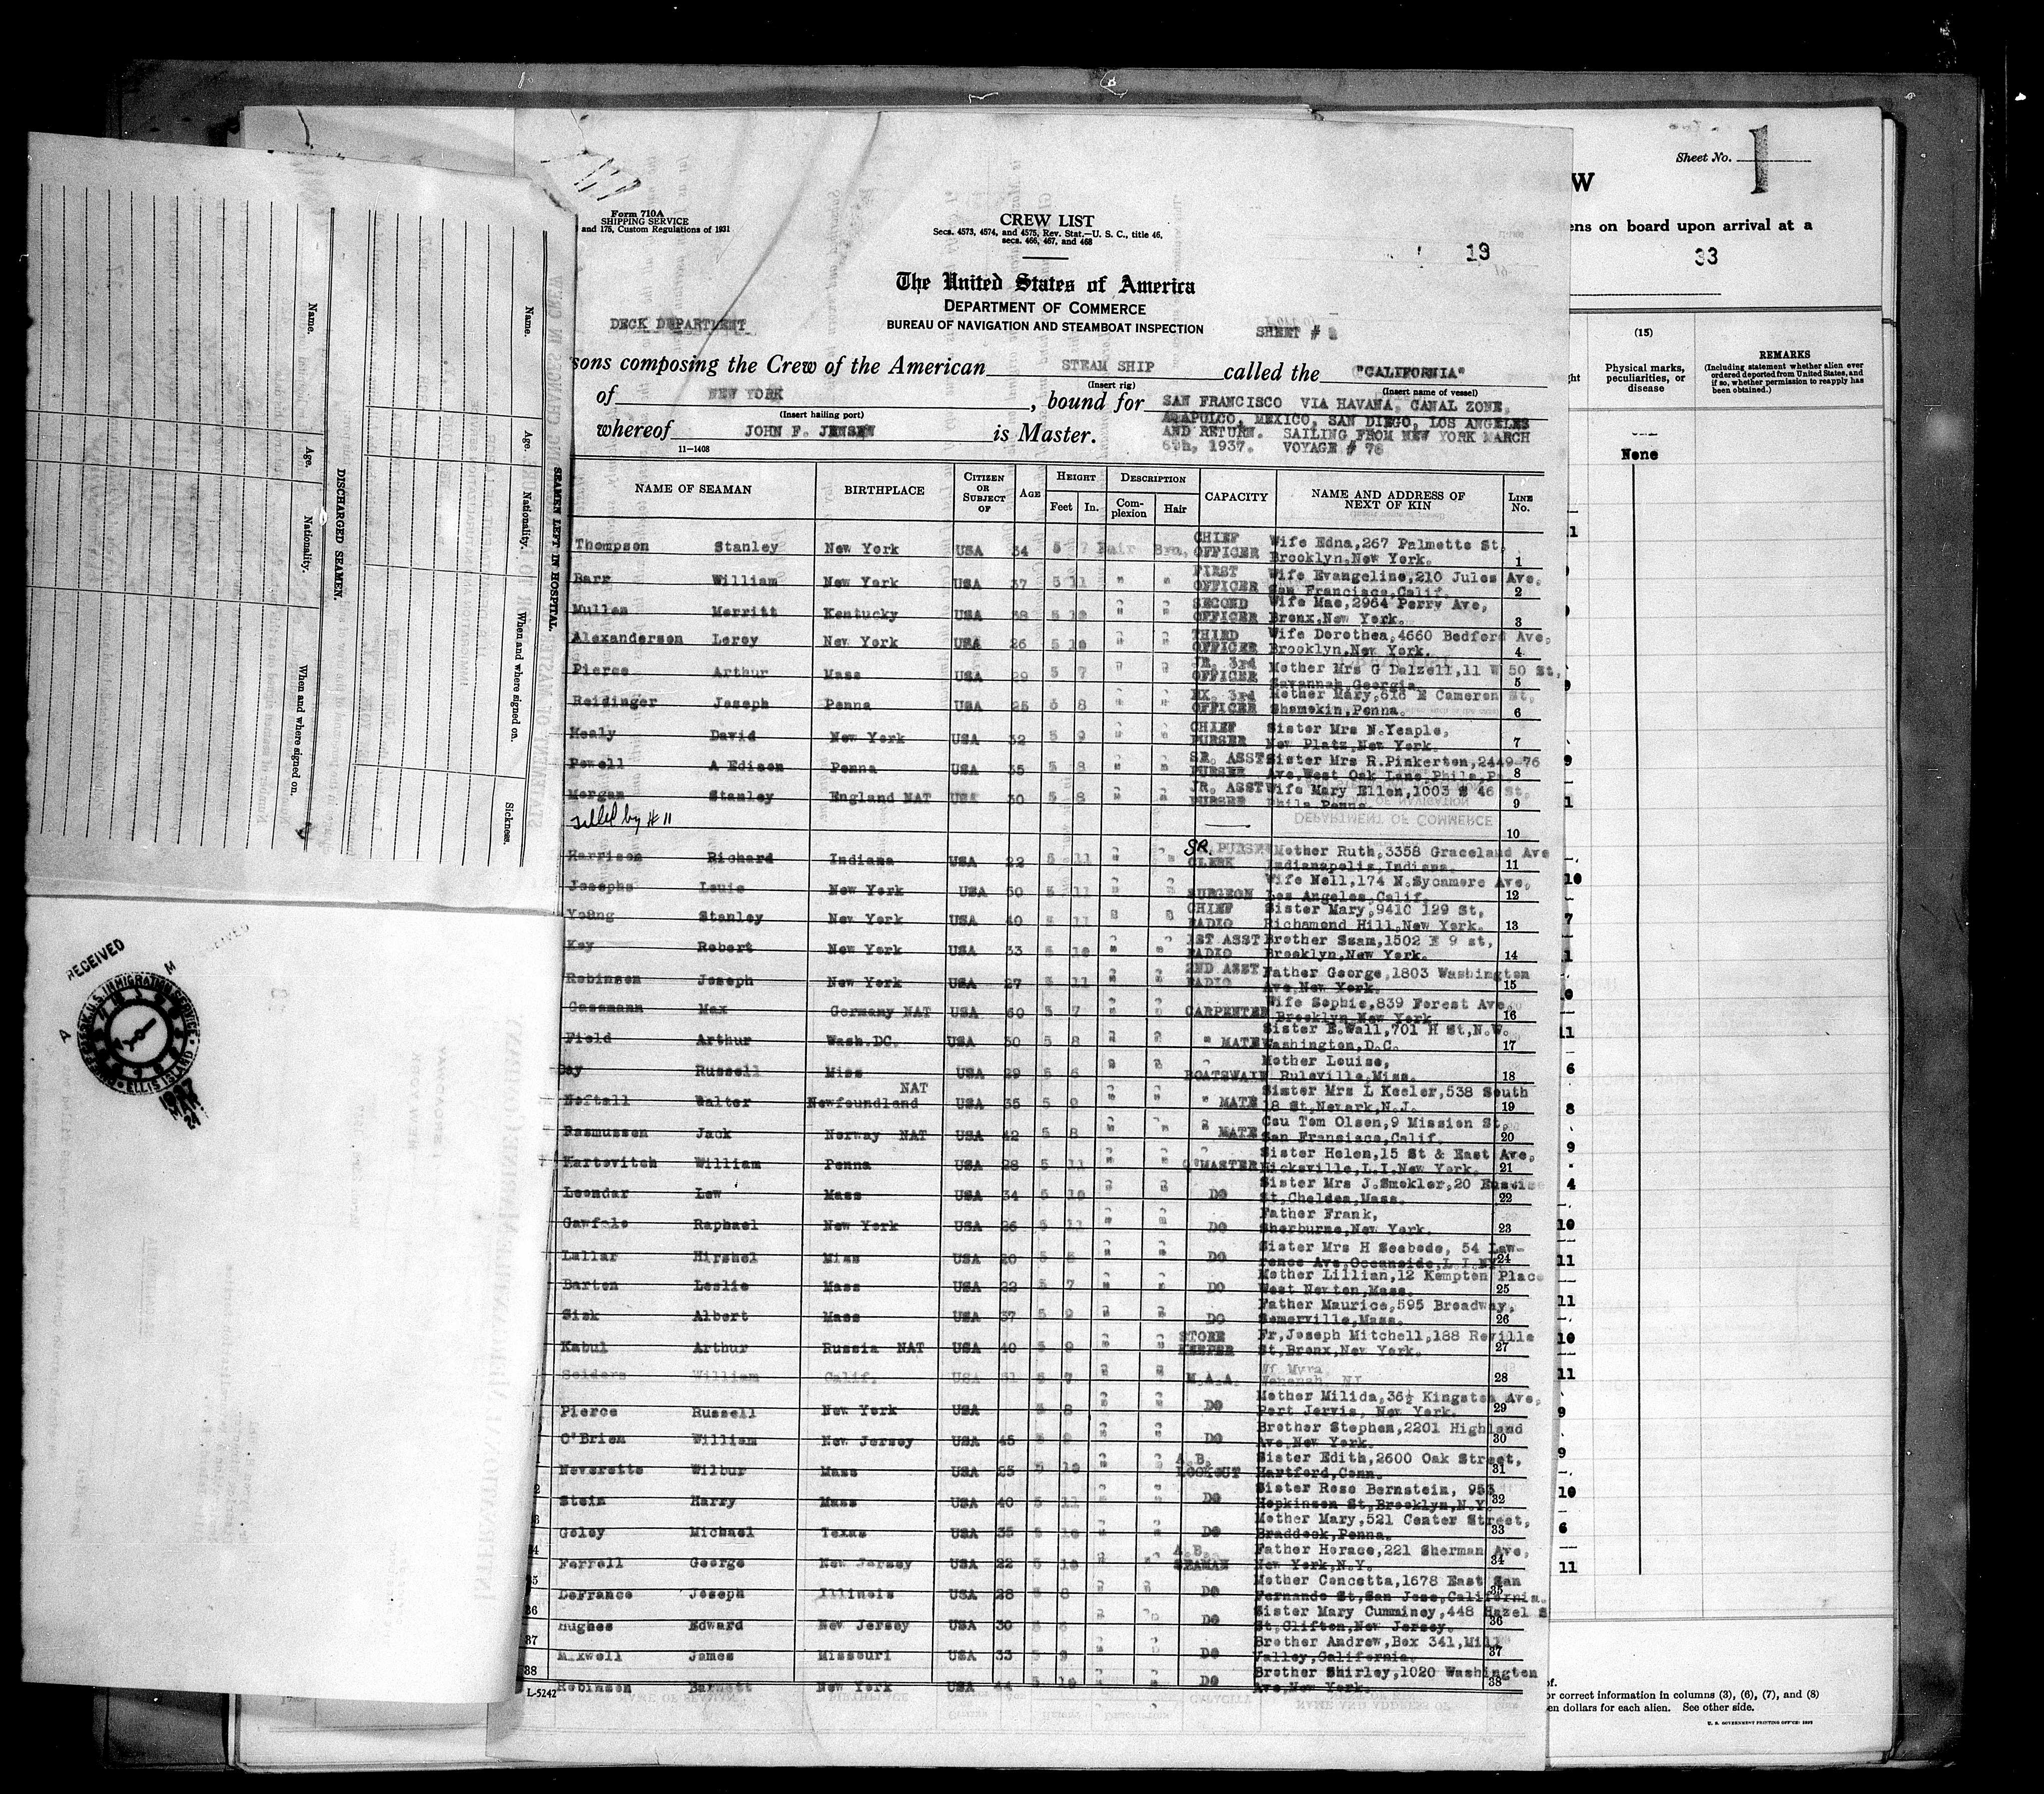 Sheet No. 1
W
ens on board upon arrival at a
33
Form 710A
SHIPPING SERVICE
and 175, Custom Regulations of 1931
CREW LIST
Secs. 4573, 4574, and 4575, Rev. Stat.—U. S. C., title 46,
secs. 466, 467, and 468
19
The United States of America
DEPARTMENT OF COMMERCE
BUREAU OF NAVIGATION AND STEAMBOAT INSPECTION
DECK DEPARTMENT
SHEET #
sons composing the Crew of the American STEAM SHIP called the "CALIFORNIA"
(Insert rig) (Insert name of vessel)
of NEW YORK, bound for SAN FRANCISCO VIA HAVANA, CANAL ZONE,
(Insert hailing port)
ACAPULCO, MEXICO, SAN DIEGO, LOS ANGELES
whereof JOHN F. JENSEN is Master. AND RETURN. SAILING FROM NEW YORK MARCH
11—1408
6th, 1937. VOYAGE # 76
NAME OF SEAMAN BIRTHPLACE CITIZEN OR SUBJECT OF AGE HEIGHT Feet In. DESCRIPTION Complexion Hair CAPACITY NAME AND ADDRESS OF NEXT OF KIN LINE No.
Thompson Stanley New York USA 34 5 7 Fair Brn, CHIEF OFFICER Wife Edna,267 Palmetto St, Brooklyn,New York. 1
Barr William New York USA 37 5 11 " " FIRST OFFICER Wife Evangeline,210 Jules Ave, San Francisco,Calif. 2
Mullen Merritt Kentucky USA 38 5 10 " " SECOND OFFICER Wife Mae,2964 Perry Ave, Bronx,New York. 3
Alexanderson Leroy New York USA 26 5 10 " " THIRD OFFICER Wife Dorothea,4660 Bedford Ave, Brooklyn,New York. 4
Pierce Arthur Mass USA 29 5 7 " " JR. 3rd OFFICER Mother Mrs G Dalzell,11 W 50 St, Savannah,Georgia 5
Reidinger Joseph Penna USA 25 5 8 " " EX. 3rd OFFICER Mother Mary,616 E Cameron St, Shamokin,Penna. 6
Healy David New York USA 32 5 9 " " CHIEF PURSER Sister Mrs N.Yeaple, New Platz,New York. 7
Powell A Edison Penna USA 35 5 8 " " SR. ASST PURSER Sister Mrs R.Pinkerton,2449-76 Ave,West Oak Lane,Phila,Pa 8
Morgan Stanley England NAT USA 30 5 8 " " JR. ASST PURSER Wife Mary Ellen,1003 S 46 St, Phila Penna. 9
filled by #11 10
Harrison Richard Indiana USA 22 5 11 " " SR. PURSER CLERK Mother Ruth,3358 Graceland Ave Indianapolis,Indiana. 11
Josephs Louis New York USA 50 5 11 " " SURGEON Wife Nell,174 N.Sycamore Ave, Los Angeles,Calif. 12
Young Stanley New York USA 40 5 11 " " CHIEF RADIO Sister Mary,9410 129 St, Richamond Hill,New York. 13
Key Robert New York USA 33 5 10 " " 1ST ASST RADIO Brother Ssam,1502 E 9 st, Brooklyn,New York. 14
Robinson Joseph New York USA 27 5 11 " " 2ND ASST RADIO Father George,1803 Washington Ave,New York. 15
Gassmann Max Germany NAT USA 60 5 7 " " CARPENTER Wife Sophie,839 Forest Ave, Brooklyn,New York 16
Field Arthur Wash.DC. USA 50 5 8 " " " MATE Sister E.Wall,701 H St,N.W. Washington,D.C. 17
Gay Russell Miss USA 29 5 6 " " BOATSWAIN Mother Louise, Ruleville,Miss. 18
Neftall Walter Newfoundland NAT USA 35 5 9 " " " MATE Sister Mrs L Keeler,538 South 18 St,Newark,N.J. 19
Rasmussen Jack Norway NAT USA 42 5 8 " " " MATE Csu Tom Olsen,9 Mission St, San Fransisco,Calif. 20
Kartovitch William Penna USA 28 5 11 " " Q'MASTER Sister Helen,15 St & East Ave, Hicksville,L.I.New York. 21
Leondar Lew Mass USA 34 5 10 " " DO Sister Mrs J.Smokler,20 St,Cheldea,Mass. 22
Gawfolo Raphael New York USA 26 5 11 " " DO Father Frank, Sherburne,New York. 23
Lallar Hirshel Miss USA 20 5 8 " " DO Sister Mrs H Seebode, 54 Lawrence Ave,Oceanside,L.I.NY 24
Barton Leslie Mass USA 22 5 7 " " DO Mother Lillian,12 Kempton Place West Newton,Mass. 25
Sisk Albert Mass USA 37 5 9 " " DO Father Maurice,595 Broadway, Somerville,Mass. 26
Kabul Arthur Russia NAT USA 40 5 9 " " STORE KEEPER Fr,Joseph Mitchell,188 Revilla St,Bronx,New York. 27
Seiders William Calif. USA 51 5 7 " " M.A.A. Wf Myra NJ 28
Pierce Russell New York USA 5 8 " " DO Mother Milida,36½ Kingston Ave, Port Jervis, New York. 29
O'Brien William New Jersey USA 45 5 9 " " DO Brother Stephen,2201 Highland Ave,New York. 30
Neverette Wilbur Mass USA 25 5 10 " " A.B. LOOKOUT Sister Edith,2600 Oak Street, Hartford,Conn. 31
Stein Harry Mass USA 40 5 11 " " DO Sister Rose Bernstein, 953 Hopkinson St,Brooklyn,N.Y. 32
Goley Michael Texas USA 35 5 10 " " DO Mother Mary,521 Center Street, Braddock,Penna. 33
Ferrell George New Jersey USA 22 5 10 " " A.B. SEAMAN Father Horace,221 Sherman Ave, New York,N.Y. 34
DeFrance Joseph Illinois USA 28 5 8 " " DO Mother Concetta,1678 East San Fernando St,San Jose,California. 35
Hughes Edward New Jersey USA 30 5 " " DO Sister Mary Cumminey,448 Hazel St,Clifton,New Jersey. 36
Maxwell James Missouri USA 33 5 9 " " DO Brother Andrew,Box 341,Mill Valley,California. 37
Robinson Barnett New York USA 44 5 10 " " DO Brother Shirley,1020 Washington Ave,New York. 38
L-5242
(15)
Physical marks, peculiarities, or disease
REMARKS
(Including statement whether alien ever ordered deported from United States, and if so, whether permission to reapply has been obtained.)
None
or correct information in columns (3), (6), (7), and (8)
en dollars for each alien. See other side.
U. S. GOVERNMENT PRINTING OFFICE:
SEAMEN LEFT IN HOSPITAL.
Name. Age. Nationality. When and where signed on. Sickness.
DISCHARGED SEAMEN.
Name. Age. Nationality. When and where signed on.
RECEIVED
U.S. IMMIGRATION SERVICE
ELLIS ISLAND